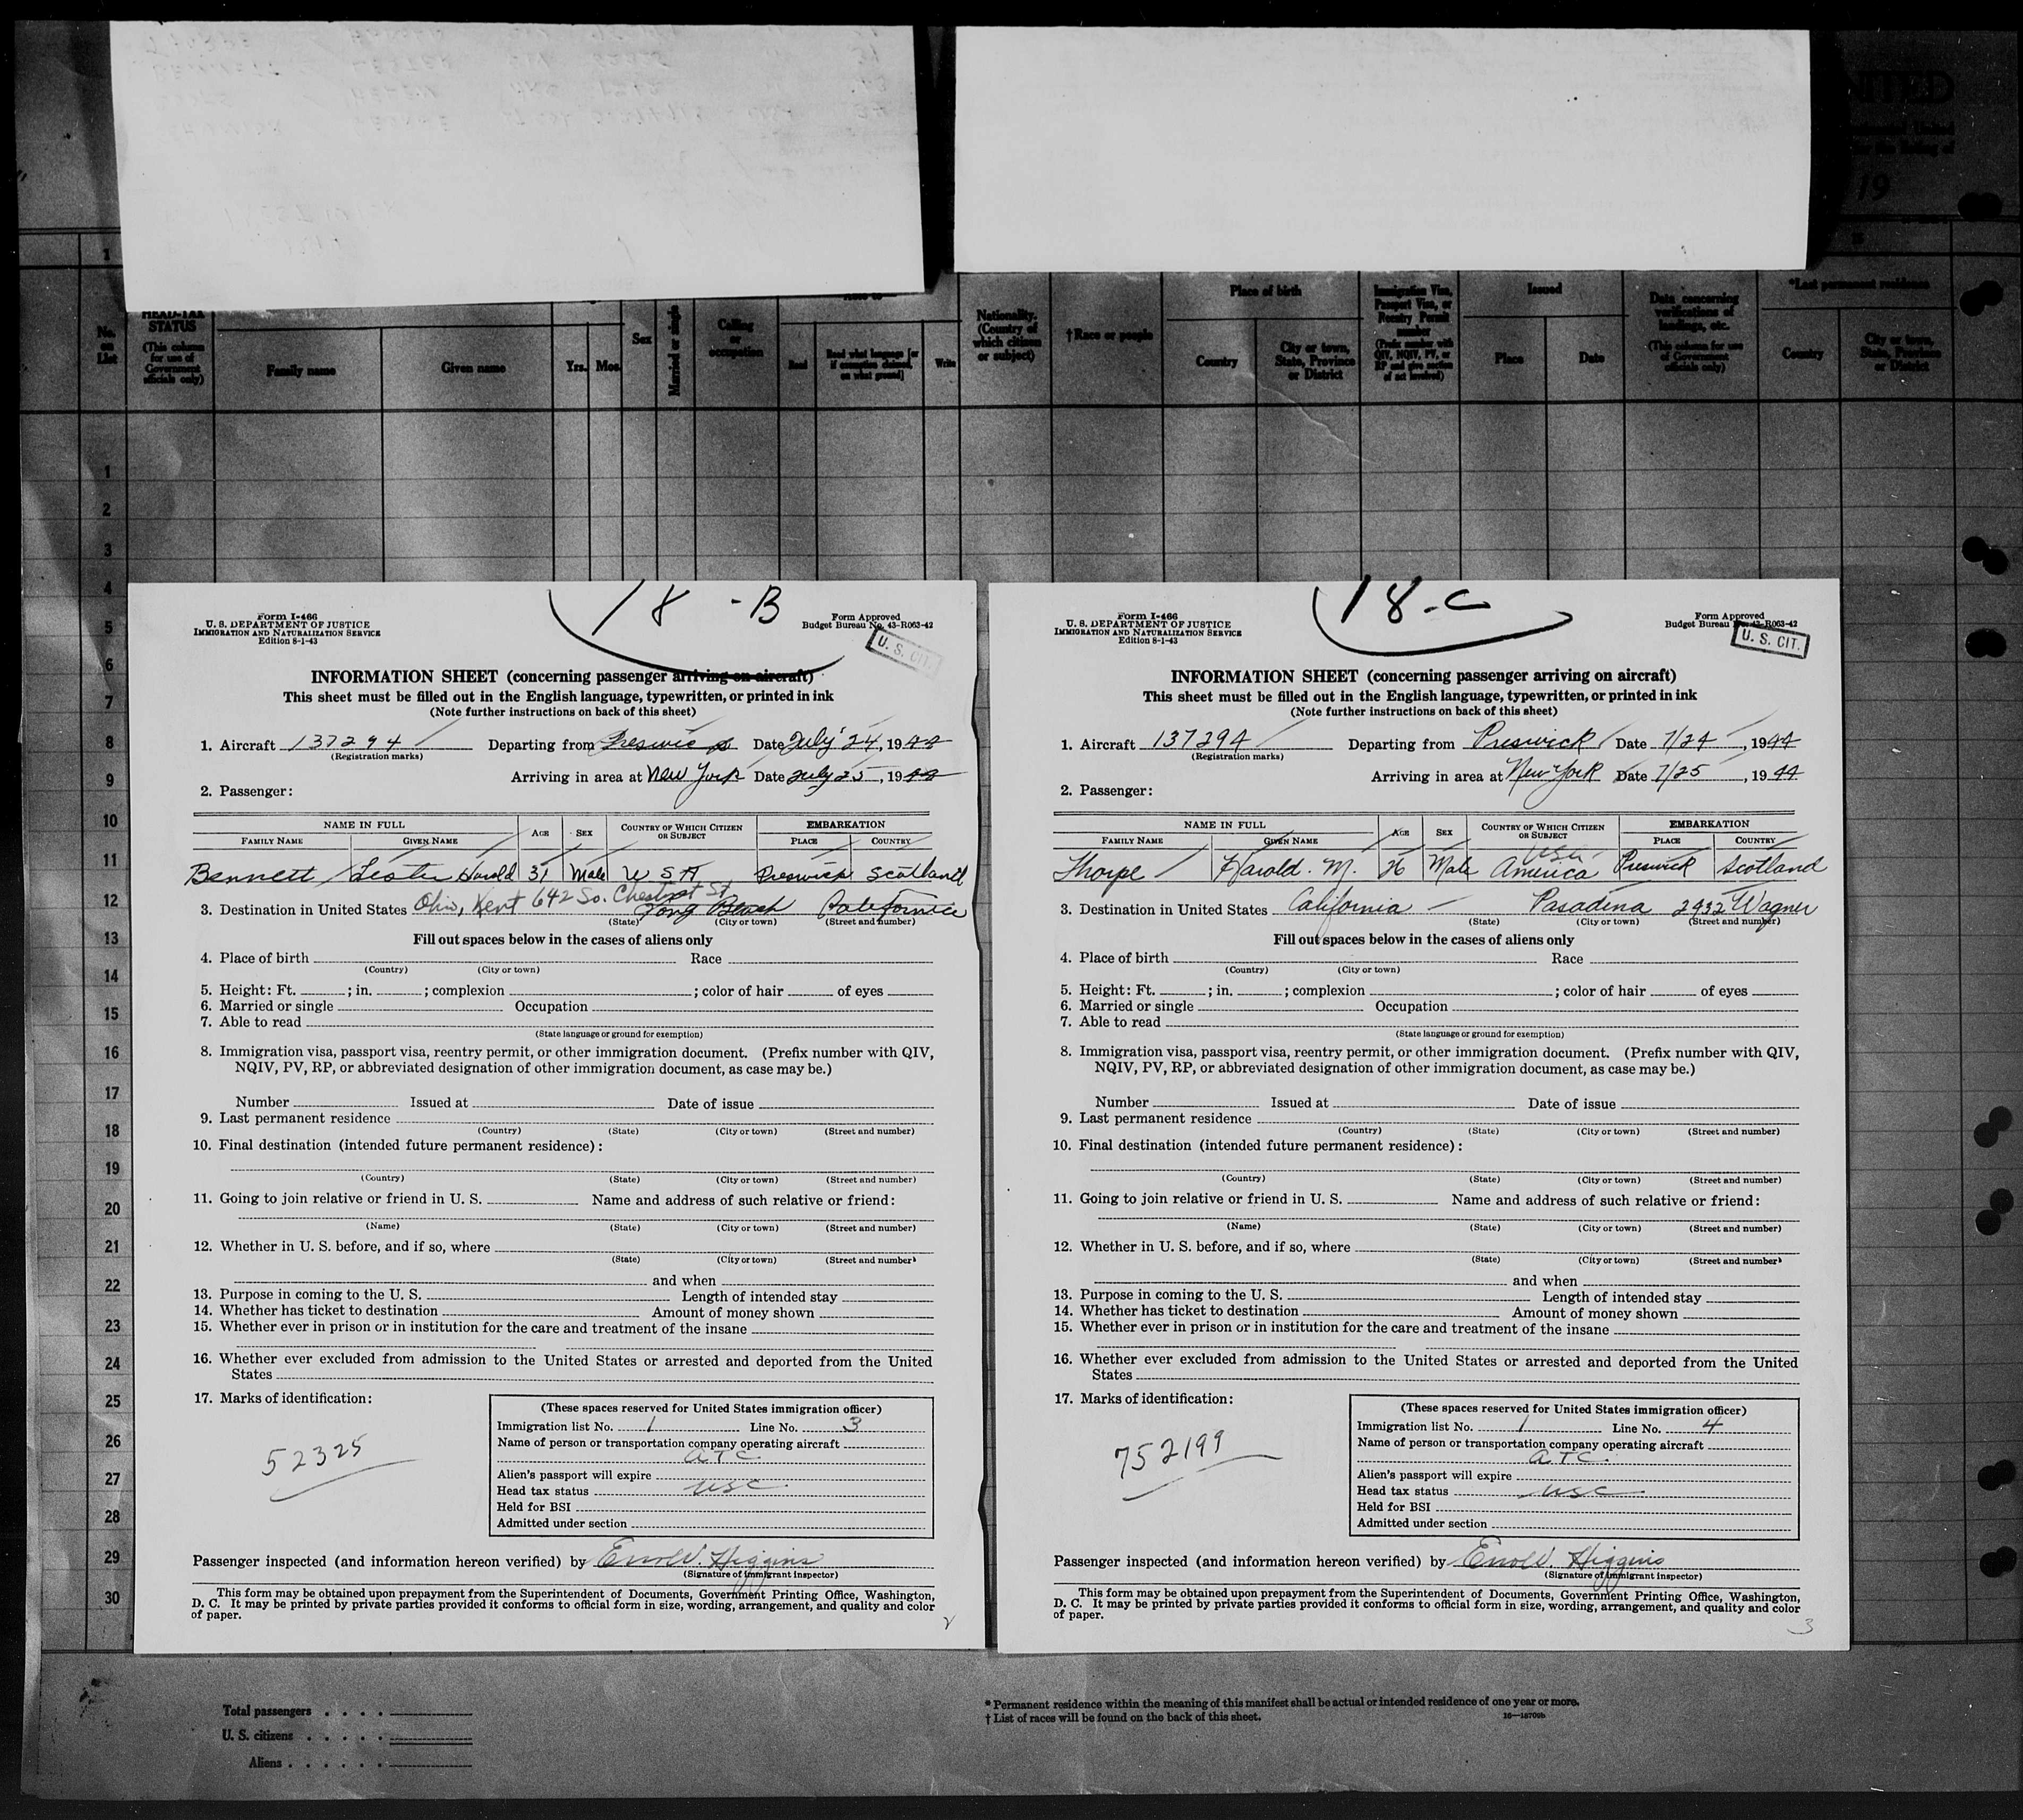 NITED
19
1
HEAD-TAX
STATUS
(This column
for use of
Government
officials only)
No.
on
List
Family name
Given name
Yrs.
Mos.
Sex
Married or single
Calling
or
occupation
Read
Read what language [or
if exemption claimed,
on what ground]
Write
Nationality.
(Country of
which citizen
or subject)
†Race or people
Place of birth
Country
City or town,
State, Province
or District
Immigration Visa,
Passport Visa, or
Reentry Permit
number
(Prefix number with
QIV, NQIV, PV, or
RP and give section
of act involved)
Issued
Place
Date
Data concerning
verifications of
landings, etc.
(This column for use
of Government
officials only)
*Last permanent residence
Country
City or town,
State, Province
or District
1
2
3
4
5
6
7
8
9
10
11
12
13
14
15
16
17
18
19
20
21
22
23
24
25
26
27
28
29
30
18-B
Form I-466
U. S. DEPARTMENT OF JUSTICE
IMMIGRATION AND NATURALIZATION SERVICE
Edition 8-1-43
Form Approved
Budget Bureau No. 43-R063-42
U. S. CIT.
INFORMATION SHEET (concerning passenger arriving on aircraft)
This sheet must be filled out in the English language, typewritten, or printed in ink
(Note further instructions on back of this sheet)
1. Aircraft 137294 Departing from Preswick Date July 24, 1944
(Registration marks)
Arriving in area at New York Date July 25, 1944
2. Passenger:
NAME IN FULL AGE SEX COUNTRY OF WHICH CITIZEN OR SUBJECT EMBARKATION
FAMILY NAME GIVEN NAME PLACE COUNTRY
Bennett Lester Harold 31 Male USA Preswick Scotland
Ohio, Kent 642 So. Chestnut St
3. Destination in United States Long Beach California
(State) (City or town) (Street and number)
Fill out spaces below in the cases of aliens only
4. Place of birth Race
(Country) (City or town)
5. Height: Ft. ; in. ; complexion ; color of hair of eyes
6. Married or single Occupation
7. Able to read
(State language or ground for exemption)
8. Immigration visa, passport visa, reentry permit, or other immigration document. (Prefix number with QIV,
NQIV, PV, RP, or abbreviated designation of other immigration document, as case may be.)
Number Issued at Date of issue
9. Last permanent residence
(Country) (State) (City or town) (Street and number)
10. Final destination (intended future permanent residence):
(Country) (State) (City or town) (Street and number)
11. Going to join relative or friend in U. S. Name and address of such relative or friend:
(Name) (State) (City or town) (Street and number)
12. Whether in U. S. before, and if so, where
(State) (City or town) (Street and number)
and when
13. Purpose in coming to the U. S. Length of intended stay
14. Whether has ticket to destination Amount of money shown
15. Whether ever in prison or in institution for the care and treatment of the insane
16. Whether ever excluded from admission to the United States or arrested and deported from the United
States
17. Marks of identification:
52325
(These spaces reserved for United States immigration officer)
Immigration list No. 1 Line No. 3
Name of person or transportation company operating aircraft
ATC
Alien's passport will expire
Head tax status USC
Held for BSI
Admitted under section
Passenger inspected (and information hereon verified) by Errol W. Higgins
(Signature of immigrant inspector)
This form may be obtained upon prepayment from the Superintendent of Documents, Government Printing Office, Washington,
D. C. It may be printed by private parties provided it conforms to official form in size, wording, arrangement, and quality and color
of paper.
2
18-C
Form I-466
U. S. DEPARTMENT OF JUSTICE
IMMIGRATION AND NATURALIZATION SERVICE
Edition 8-1-43
Form Approved
Budget Bureau No. 43-R063-42
U. S. CIT.
INFORMATION SHEET (concerning passenger arriving on aircraft)
This sheet must be filled out in the English language, typewritten, or printed in ink
(Note further instructions on back of this sheet)
1. Aircraft 137294 Departing from Preswick Date 7/24, 1944
(Registration marks)
Arriving in area at New York Date 7/25, 1944
2. Passenger:
NAME IN FULL AGE SEX COUNTRY OF WHICH CITIZEN OR SUBJECT EMBARKATION
FAMILY NAME GIVEN NAME PLACE COUNTRY
USA
Thorpe Harold. M. 26 Male America Preswick Scotland
3. Destination in United States California Pasadena 2932 Wagner
(State) (City or town) (Street and number)
Fill out spaces below in the cases of aliens only
4. Place of birth Race
(Country) (City or town)
5. Height: Ft. ; in. ; complexion ; color of hair of eyes
6. Married or single Occupation
7. Able to read
(State language or ground for exemption)
8. Immigration visa, passport visa, reentry permit, or other immigration document. (Prefix number with QIV,
NQIV, PV, RP, or abbreviated designation of other immigration document, as case may be.)
Number Issued at Date of issue
9. Last permanent residence
(Country) (State) (City or town) (Street and number)
10. Final destination (intended future permanent residence):
(Country) (State) (City or town) (Street and number)
11. Going to join relative or friend in U. S. Name and address of such relative or friend:
(Name) (State) (City or town) (Street and number)
12. Whether in U. S. before, and if so, where
(State) (City or town) (Street and number)
and when
13. Purpose in coming to the U. S. Length of intended stay
14. Whether has ticket to destination Amount of money shown
15. Whether ever in prison or in institution for the care and treatment of the insane
16. Whether ever excluded from admission to the United States or arrested and deported from the United
States
17. Marks of identification:
752199
(These spaces reserved for United States immigration officer)
Immigration list No. 1 Line No. 4
Name of person or transportation company operating aircraft
ATC.
Alien's passport will expire
Head tax status USC
Held for BSI
Admitted under section
Passenger inspected (and information hereon verified) by Errol W. Higgins
(Signature of immigrant inspector)
This form may be obtained upon prepayment from the Superintendent of Documents, Government Printing Office, Washington,
D. C. It may be printed by private parties provided it conforms to official form in size, wording, arrangement, and quality and color
of paper.
3
Total passengers
U. S. citizens
Aliens
* Permanent residence within the meaning of this manifest shall be actual or intended residence of one year or more.
† List of races will be found on the back of this sheet.
16—18709b